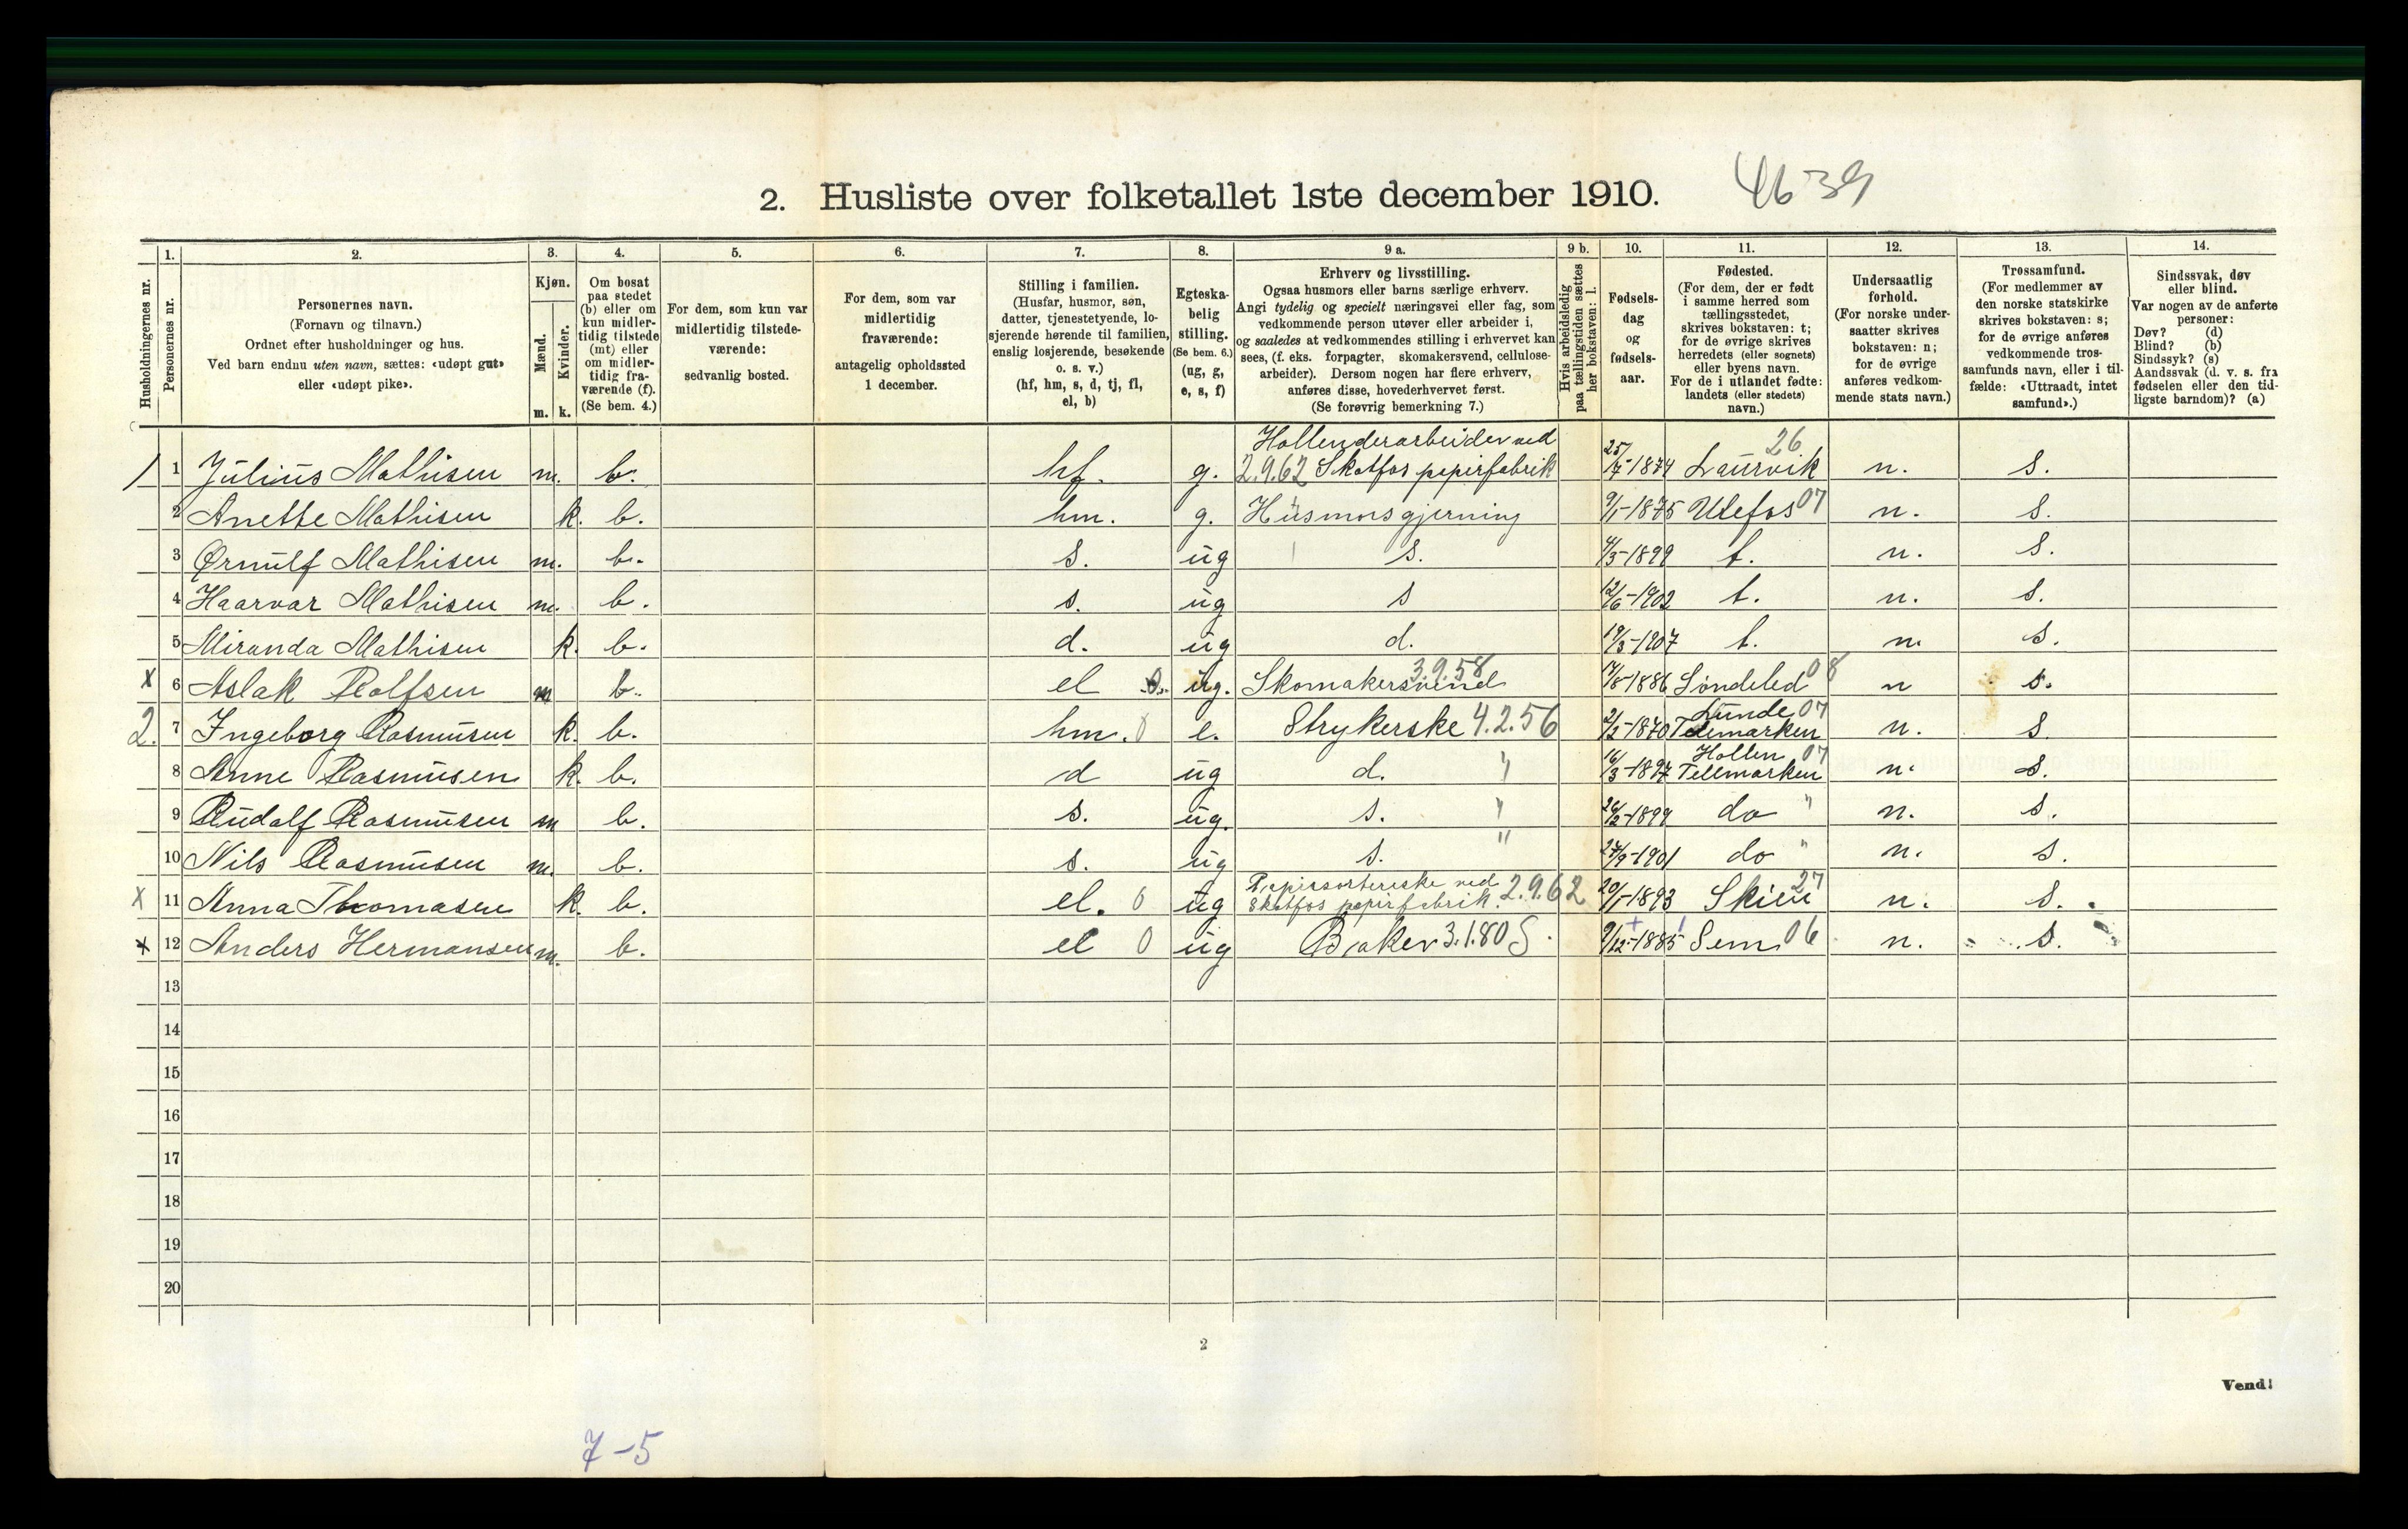 2. Husliste over folketallet 1ste december 1910. 4639
Husholdningernes nr.
1. Personernes nr.
2. Personernes navn.
(Fornavn og tilnavn.)
Ordnet efter husholdninger og hus.
Ved barn endnu uten navn, sættes: «udøpt gut»
eller «udøpt pike».
3. Kjøn.
Mænd. m.
Kvinder. k.
4. Om bosat
paa stedet
(b) eller om
kun midler-
tidig tilstede
(mt) eller
om midler-
tidig fra-
værende (f).
(Se bem. 4.)
5. For dem, som kun var
midlertidig tilstede-
værende:
sedvanlig bosted.
6. For dem, som var
midlertidig
fraværende:
antagelig opholdssted
1 december.
7. Stilling i familien.
(Husfar, husmor, søn,
datter, tjenestetyende, lo-
sjerende hørende til familien,
enslig losjerende, besøkende
o. s. v.)
(hf, hm, s, d, tj, fl,
el, b)
8. Egteska-
belig
stilling.
(Se bem. 6.)
(ug, g,
e, s, f)
9 a. Erhverv og livsstilling.
Ogsaa husmors eller barns særlige erhverv.
Angi tydelig og specielt næringsvei eller fag, som
vedkommende person utøver eller arbeider i,
og saaledes at vedkommendes stilling i erhvervet kan
sees, (f. eks. forpagter, skomakersvend, cellulose-
arbeider). Dersom nogen har flere erhverv,
anføres disse, hovederhvervet først.
(Se forøvrig bemerkning 7.)
9 b. Hvis arbeidsledig
paa tællingstiden sættes
her bokstaven: l.
10. Fødsels-
dag
og
fødsels-
aar.
11. Fødested.
(For dem, der er født
i samme herred som
tællingsstedet,
skrives bokstaven: t;
for de øvrige skrives
herredets (eller sognets)
eller byens navn.
For de i utlandet fødte:
landets (eller stedets)
navn.)
12. Undersaatlig
forhold.
(For norske under-
saatter skrives
bokstaven: n;
for de øvrige
anføres vedkom-
mende stats navn.)
13. Trossamfund.
(For medlemmer av
den norske statskirke
skrives bokstaven: s;
for de øvrige anføres
vedkommende tros-
samfunds navn, eller i til-
fælde: «Uttraadt, intet
samfund».)
14. Sindssvak, døv
eller blind.
Var nogen av de anførte
personer:
Døv? (d)
Blind? (b)
Sindssyk? (s)
Aandssvak (d. v. s. fra
fødselen eller den tid-
ligste barndom)? (a)
Hollenderarbeider ved
1 1 Julius Mathisen m. b. hf. g. 2.9.62 Skotfos papirfabrik 25/7-1874 Laurvik 26 n. s.
2 Anette Mathisen k. b. hm. g. Husmorsgjerning 9/1-1875 Ulefos 07 n. s.
3 Ørnulf Mathisen m. b. s. ug s. 4/3-1899 t. n. s.
4 Haarvar Mathisen m. b. s. ug s 12/6-1902 t. n. s.
5 Miranda Mathisen k. b. d. ug d. 19/3-1907 t. n. s.
x 6 Aslak Rolfsen m b. el 0. ug. Skomakersvend 3.9.58 17/8-1886 Søndeled 08 n s.
2. 7 Ingeborg Rasmusen k. b. hm. 0 e. Strykerske 4.2.56 2/2-1870 Lunde 07
Telemarken n. s.
8 Anne Rasmusen k. b. d ug d. " 16/3-1897 Hollen 07
Tellmarken n. s.
9 Rudolf Rasmusen m b. s. ug. s. " 26/2-1899 do " n. s.
10 Nils Rasmusen m. b. s. ug s. " 27/9-1901 do " n. s.
x 11 Anna Thomasen k. b. el. 0 ug Papirsorterske ved
Skotfos papirfabrik. 2.9.62 20/1-1893 Skien 27 n. s.
x 12 Anders Hermansen m. b. el 0 ug Baker 3.1.80 S. 9/12-1885 Sem 06 n. s.
13
14
15
16
17
18
19
20
2
Vend!
7-5